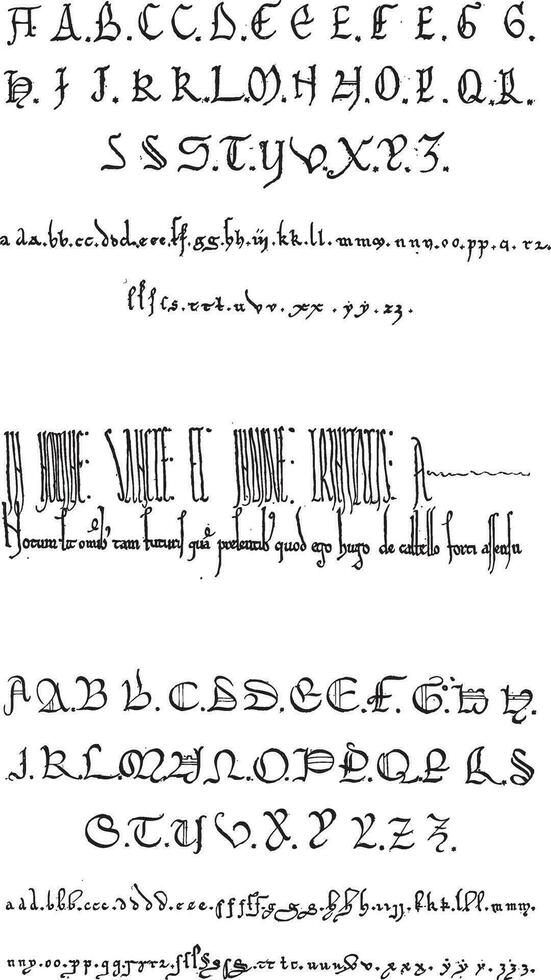 A A.B.B.C C.D.E E E.F.E.G G.
H.I J.K K.L.M.N N.O.P.Q.R.
S S S.T.U V.X.Y.Z.
a da.bb.cc.dvd.eee.ff.gg.hh.iij.kk.ll.mmm.nnn.oo.pp.q.r2.
ſſſſcs.ttt.uvv.xx.ẏẏ.zz.
IN NOMINE: SANCTE: ET INDIVIDUE: TRINITATIS: A
Notum ſit omib' tam futuriſ quā preſentib' quod ego hugo de caſtello forti aſſenſu
A A.B B.C.D D.E E.F.G.H H.
J.K.L.M N.O.P P.Q.P R.S
S.T.U V.X.Y Y.Z Z.
aad.bbb.ccc.dddd.eee.ffff.ggg.hhh.iijj.kkk.lll.mmm.
nny.oo.pp.qq.rrr2.ſſſſsſs.ttt.uuuvv.xxx.ẏẏ.ẏ.zzz.